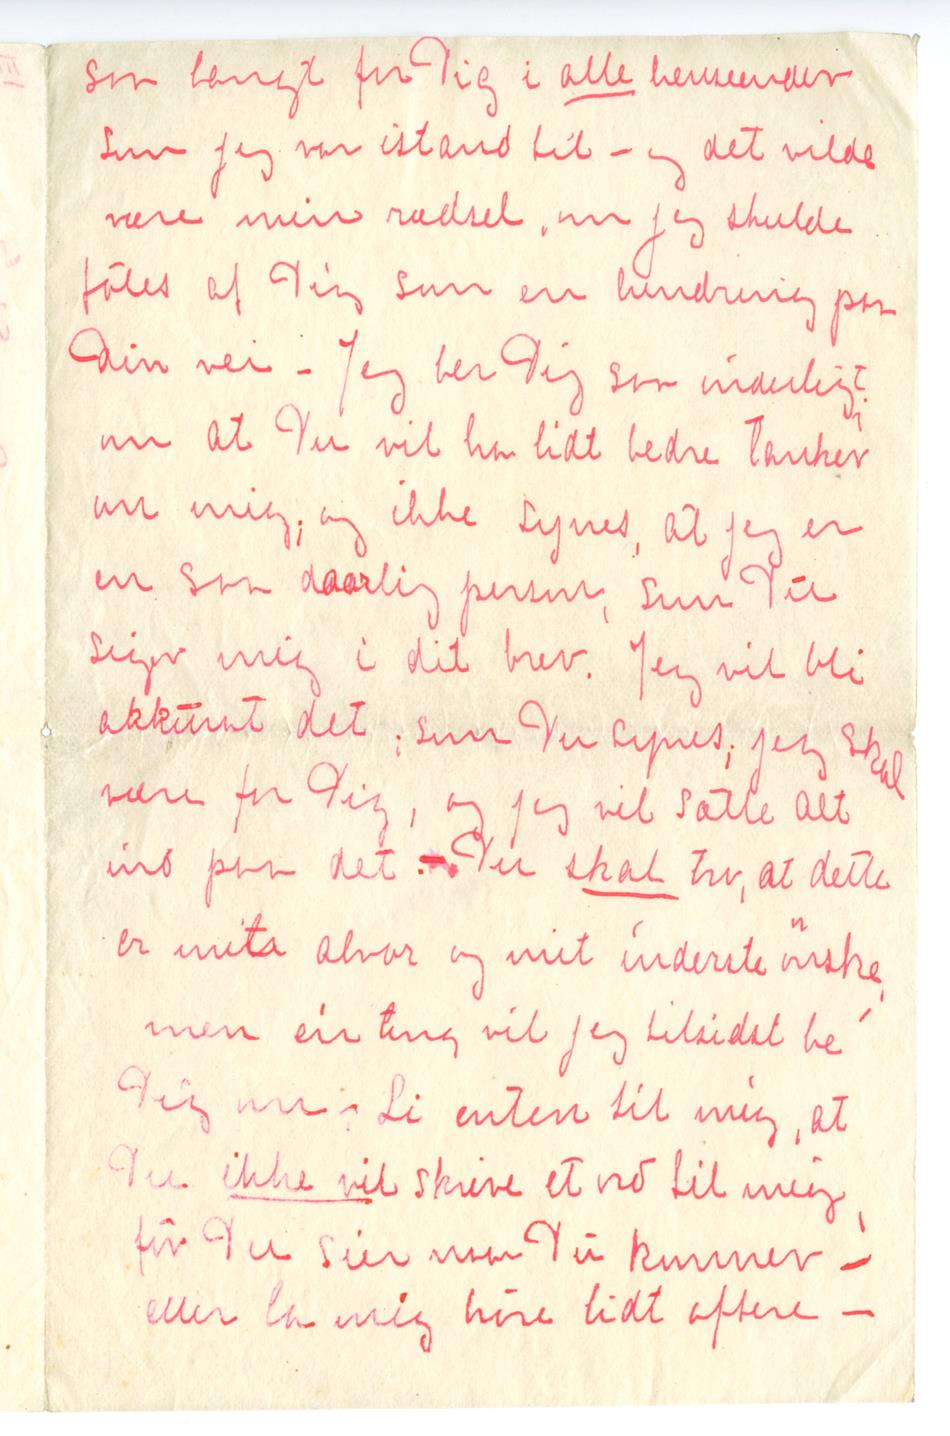 saa langt for Dig i alle henseender
som jeg var istand til – og det vilde
være min rædsel, om jeg skulde
føles af Dig som en hindring paa
Din vei – Jeg ber Dig saa inderligt
om at Du vil ha lidt bedre tanker
om mig, og ikke synes, at jeg er
en saa daarlig person, som Du
siger mig i dit brev. Jeg vil bli
akkurat det, som Du synes, jeg skal
være for Dig, og jeg vil sætte alt
ind paa det. – Du skal tro, at dette
er mit alvor og mit inderste ønske,
men én ting vil jeg tilsidst be
Dig om: Si enten til mig, at
Du ikke vil skrive et ord til mig,
før Du sier naar Du kommer –
eller la mig høre lidt oftere –